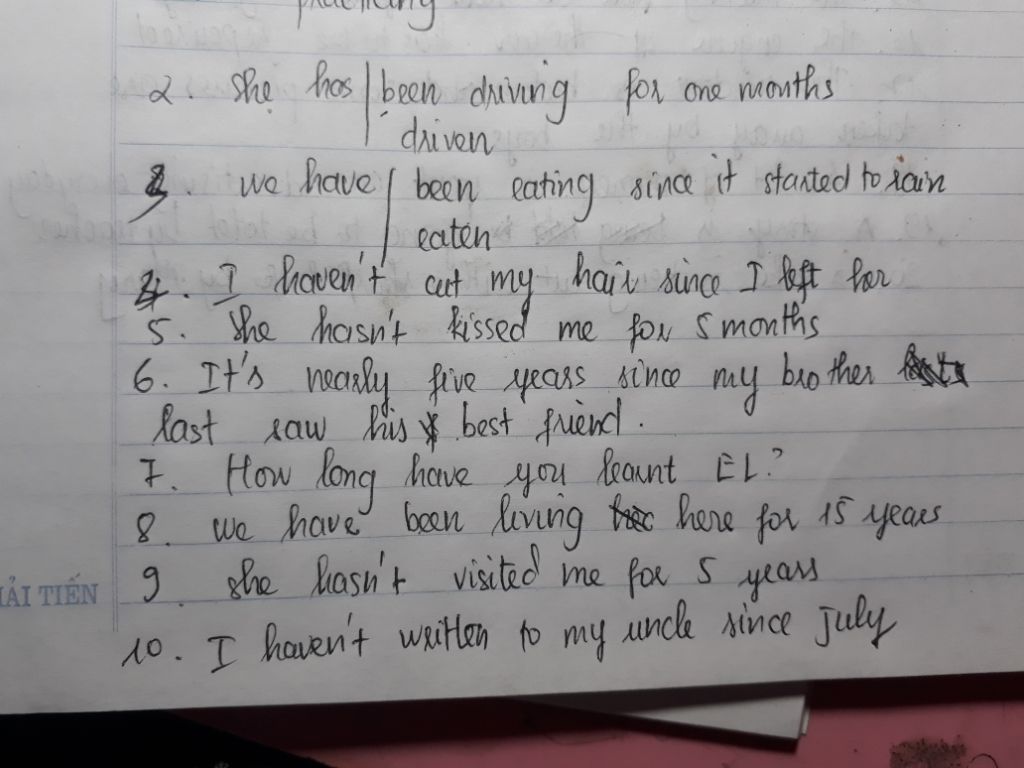 practicing
2. She has been driving for one months
driven
3. we have been eating since it started to rain
eaten
4. I haven't cut my hair since I left her
5. She hasn't kissed me for 5 months
6. It's nearly five years since my brother
last saw his best friend.
7. How long have you learnt EL?
8. we have been living here for 15 years
9. she hasn't visited me for 5 years
ẢI TIẾN
10. I haven't written to my uncle since july